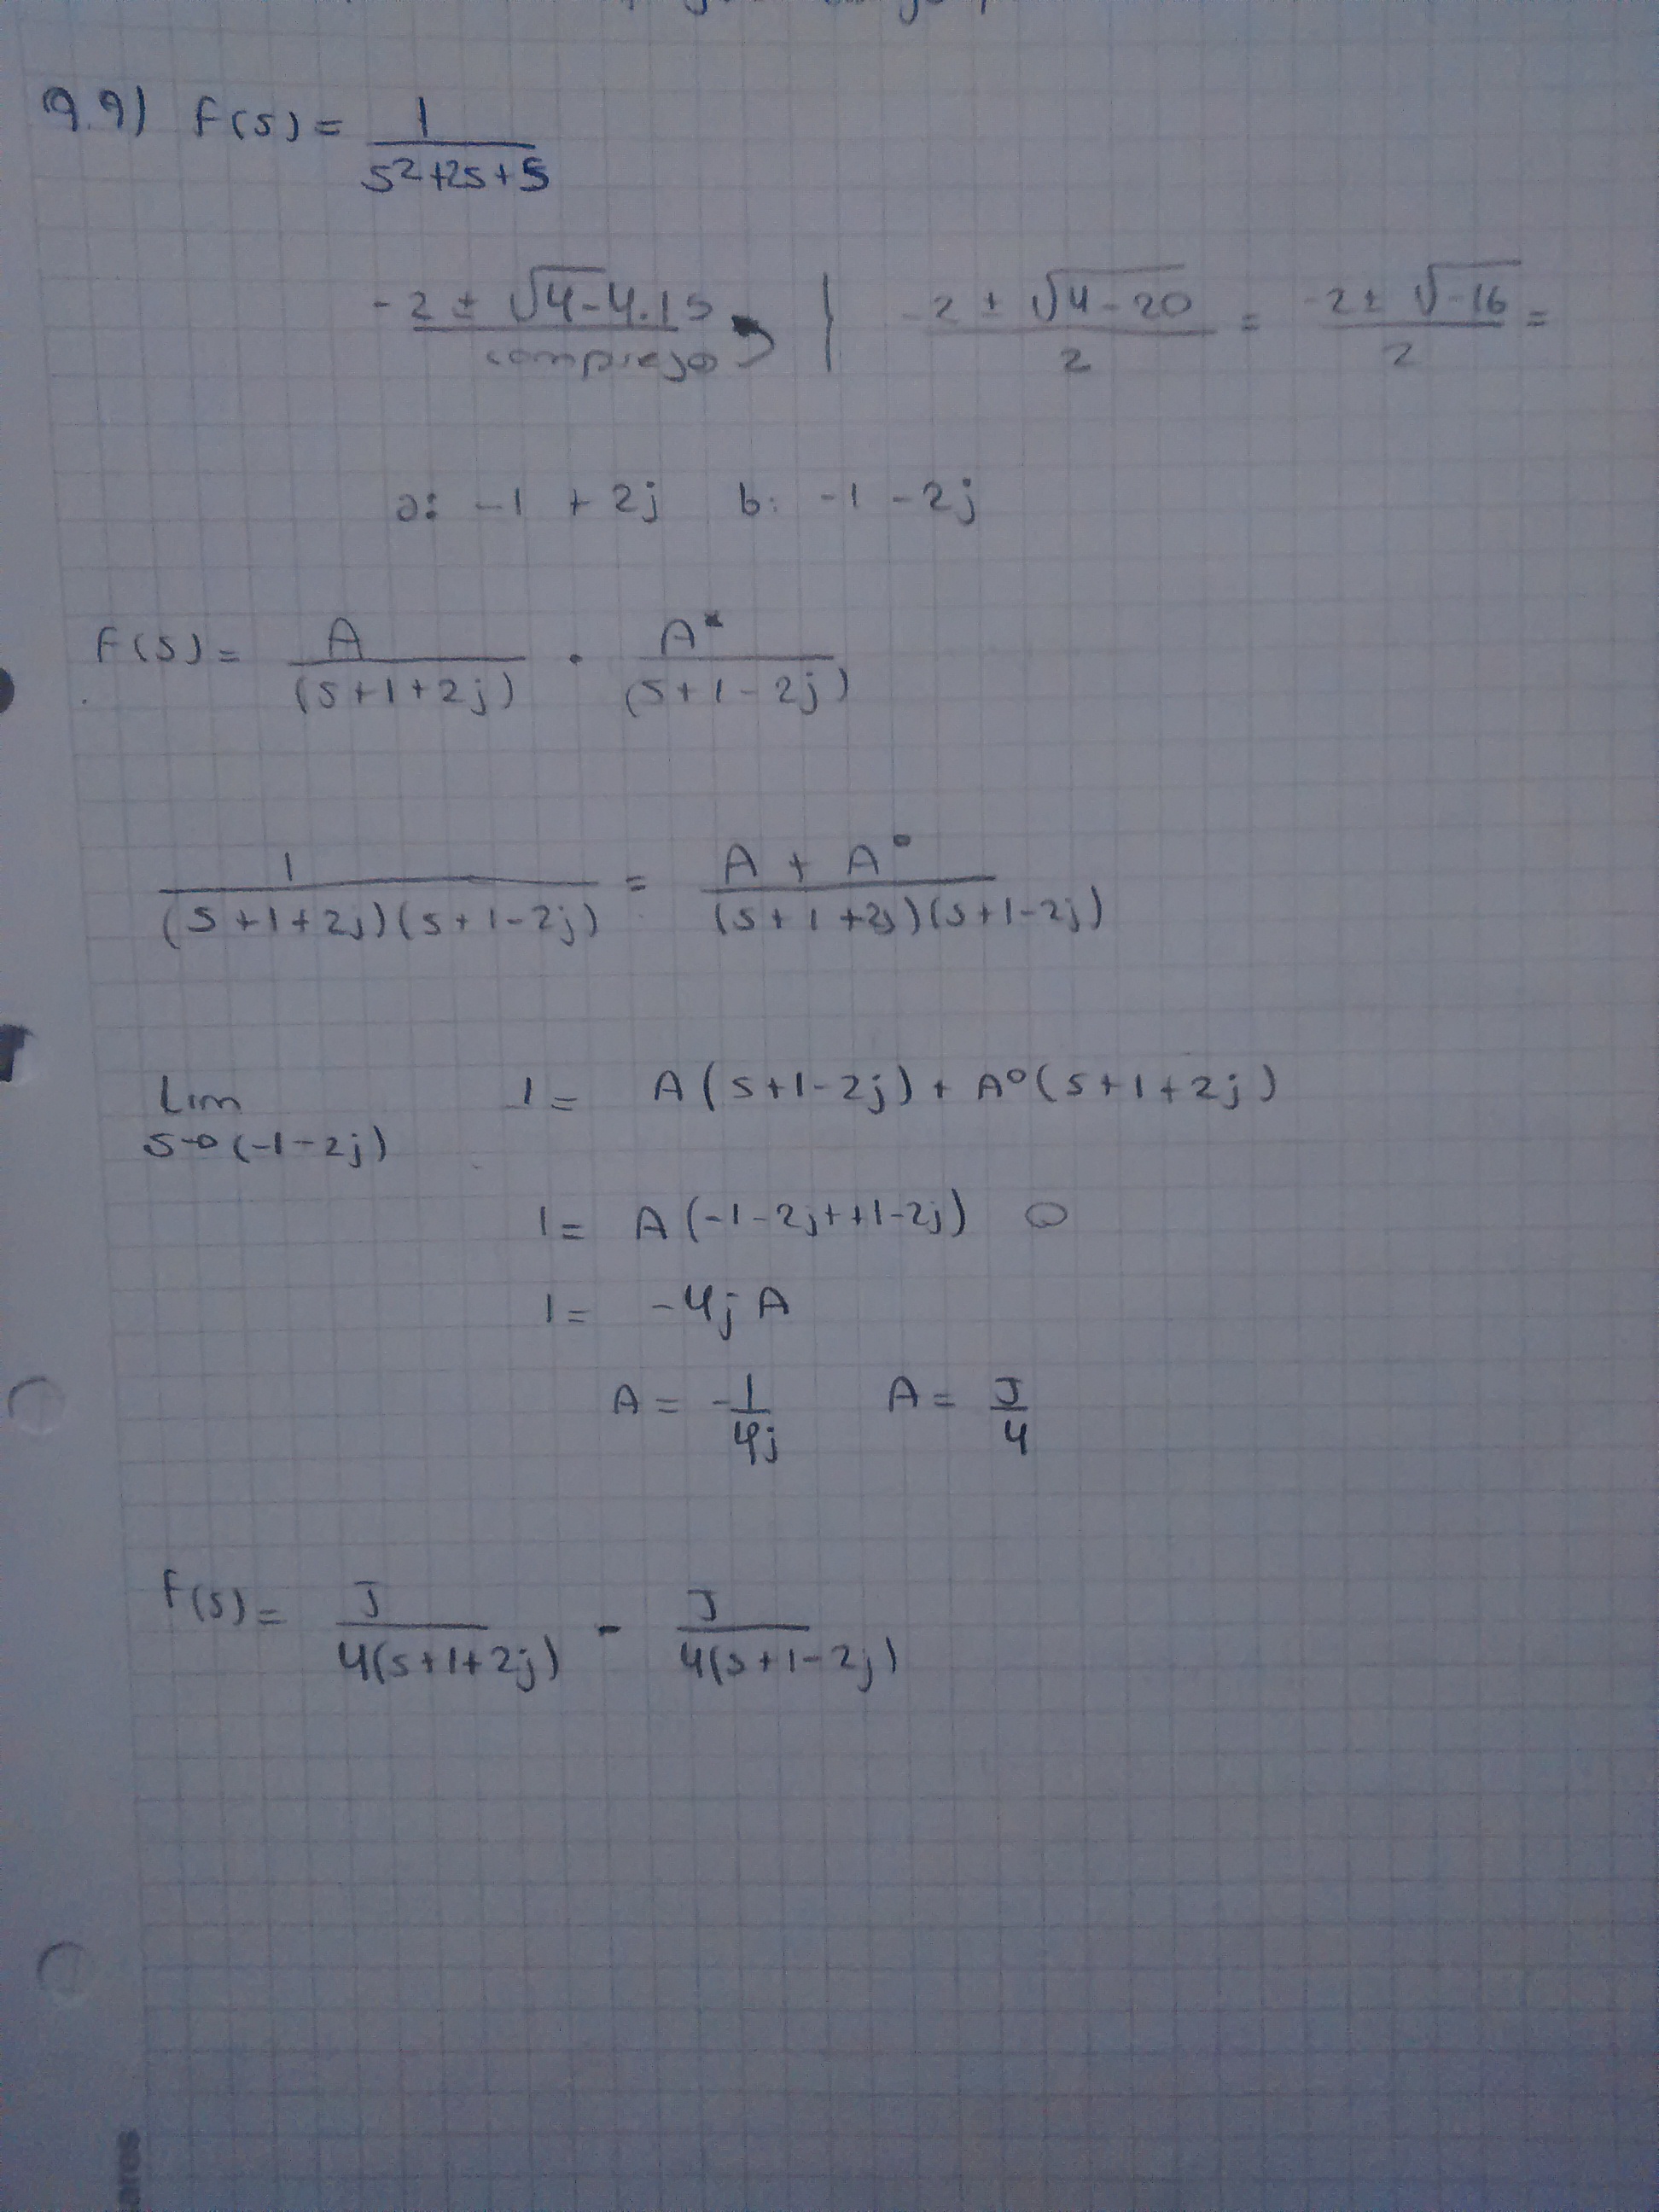 9.9) F(s) = 1 / s²+2s+5
-2 ± √4-4.1 5 / complejo | -2 ± √4-20 / 2 = -2 ± √-16 / 2 =
a: -1 + 2j b: -1 - 2j
F(s) = A / (s+1+2j) · A* / (s+1-2j)
1 / (s+1+2j)(s+1-2j) = A + A° / (s+1+2j)(s+1-2j)
Lim 1 = A(s+1-2j) + A°(s+1+2j)
s→(-1-2j)
1 = A(-1-2j++1-2j) 0
1 = -4jA
A = -1/4j A = J/4
F(s) = J / 4(s+1+2j) - J / 4(s+1-2j)
ares